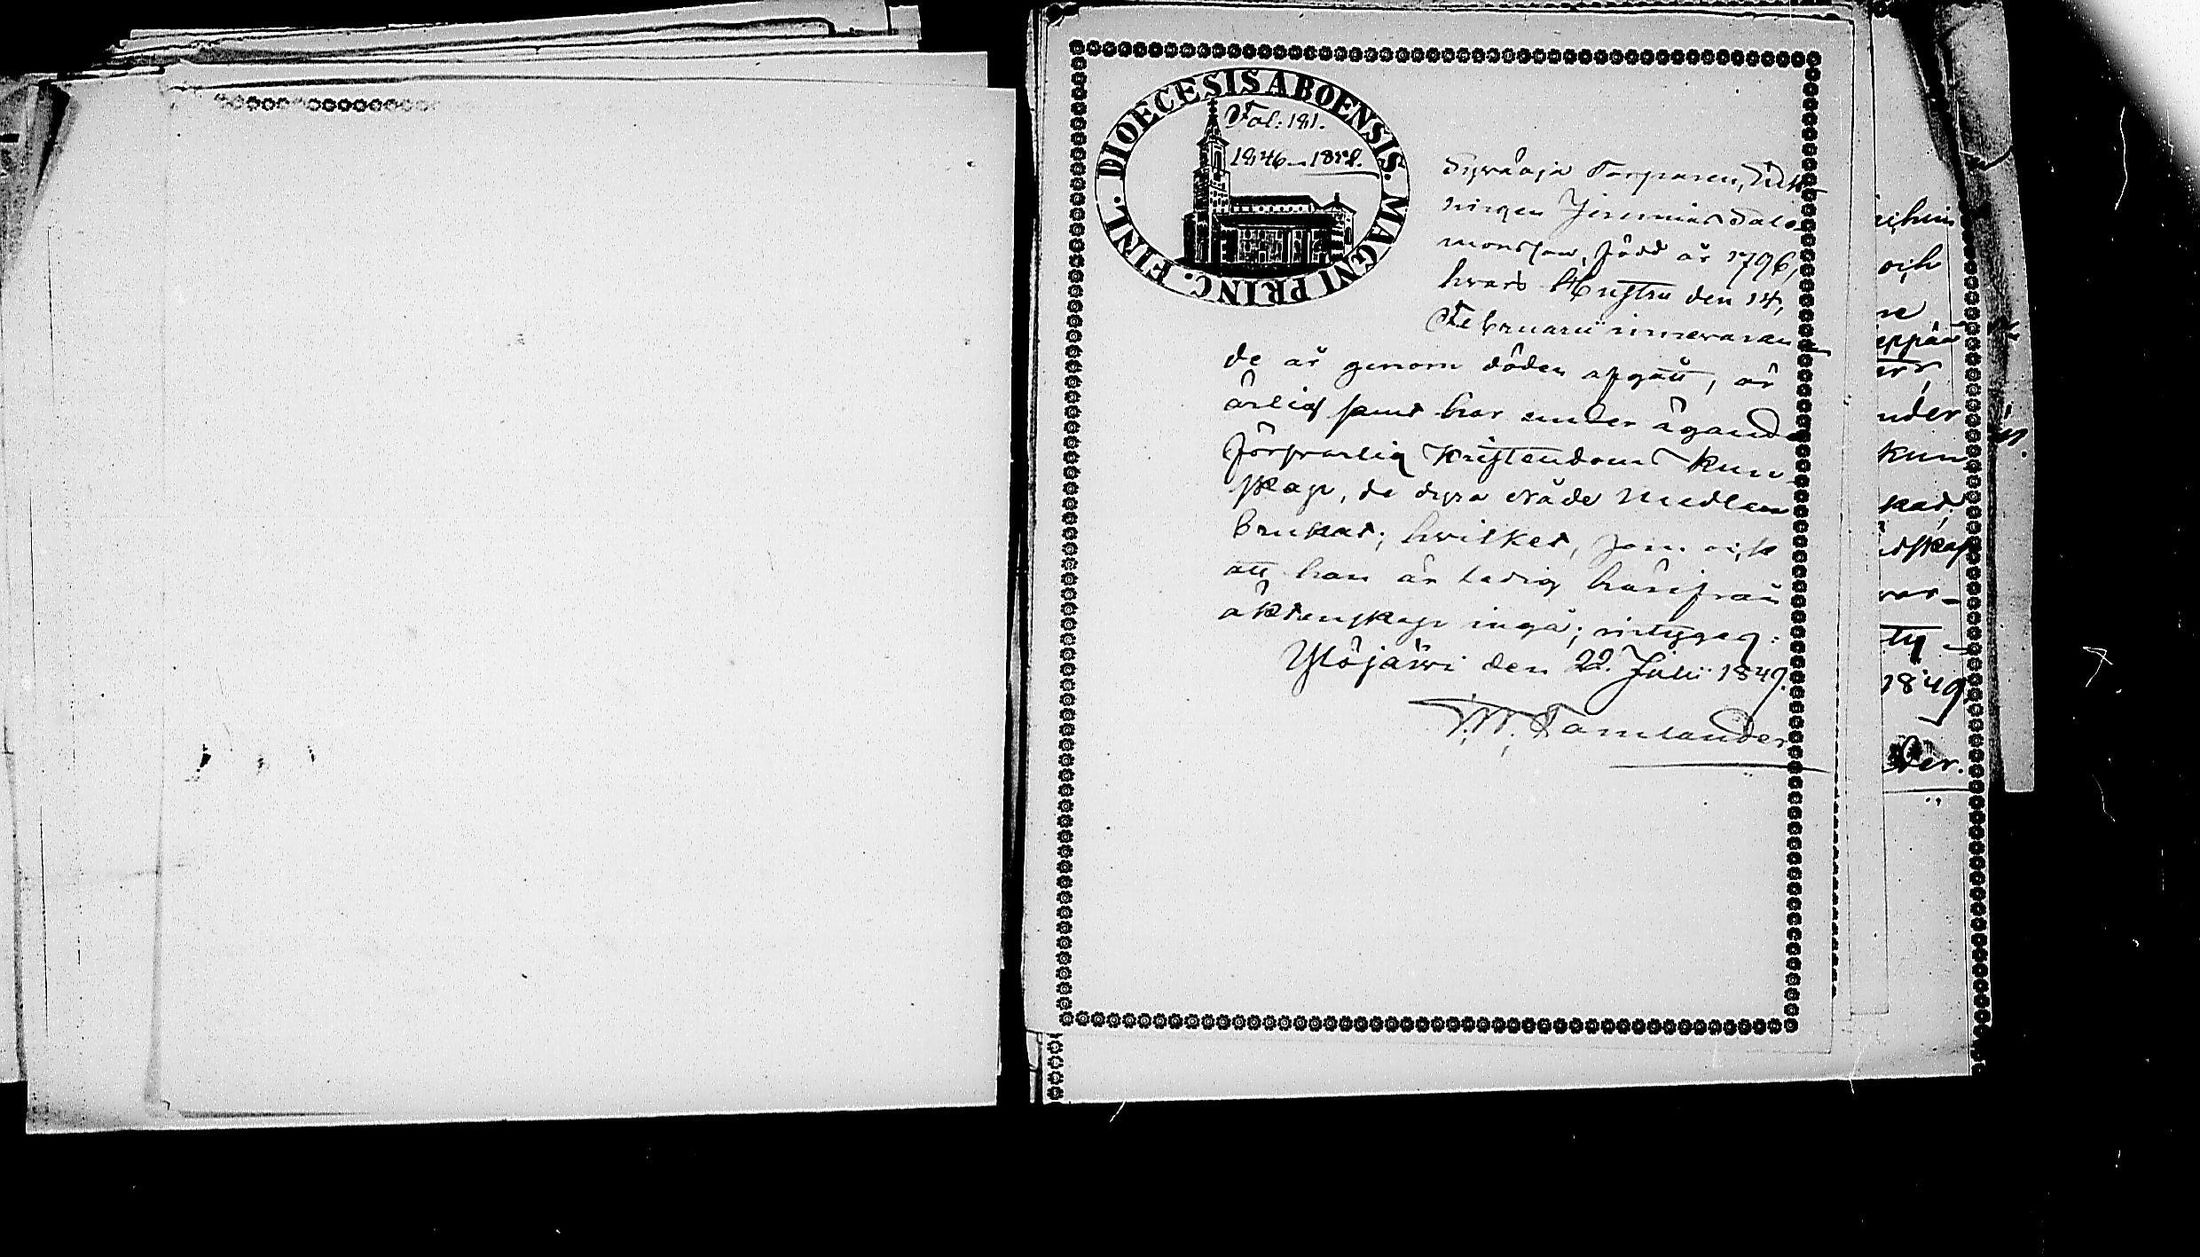 DIOECESIS ABOENSIS. MAGNI PRINC. FINL.
Fol: 181.
1846–1852.
Torparen, Enk-
lingen Jeremias Salo-
monsson, född år 1796,
hvars Hustru den 14,
Februarii innevaran-
de år genom döden afgått, är
ärlig samt har under ägande
försvarlig Kristendoms kun-
skap, de dyra Nåde Medlen
brukat; hvilket, som och
att han är ledig härifrån
äktenskap ingå; intygag:
Ylöjärvi den 22. Julii 1849.
F.W. Tamlander
och
ne
under
kun
skap
var-
ty-
1849
der.